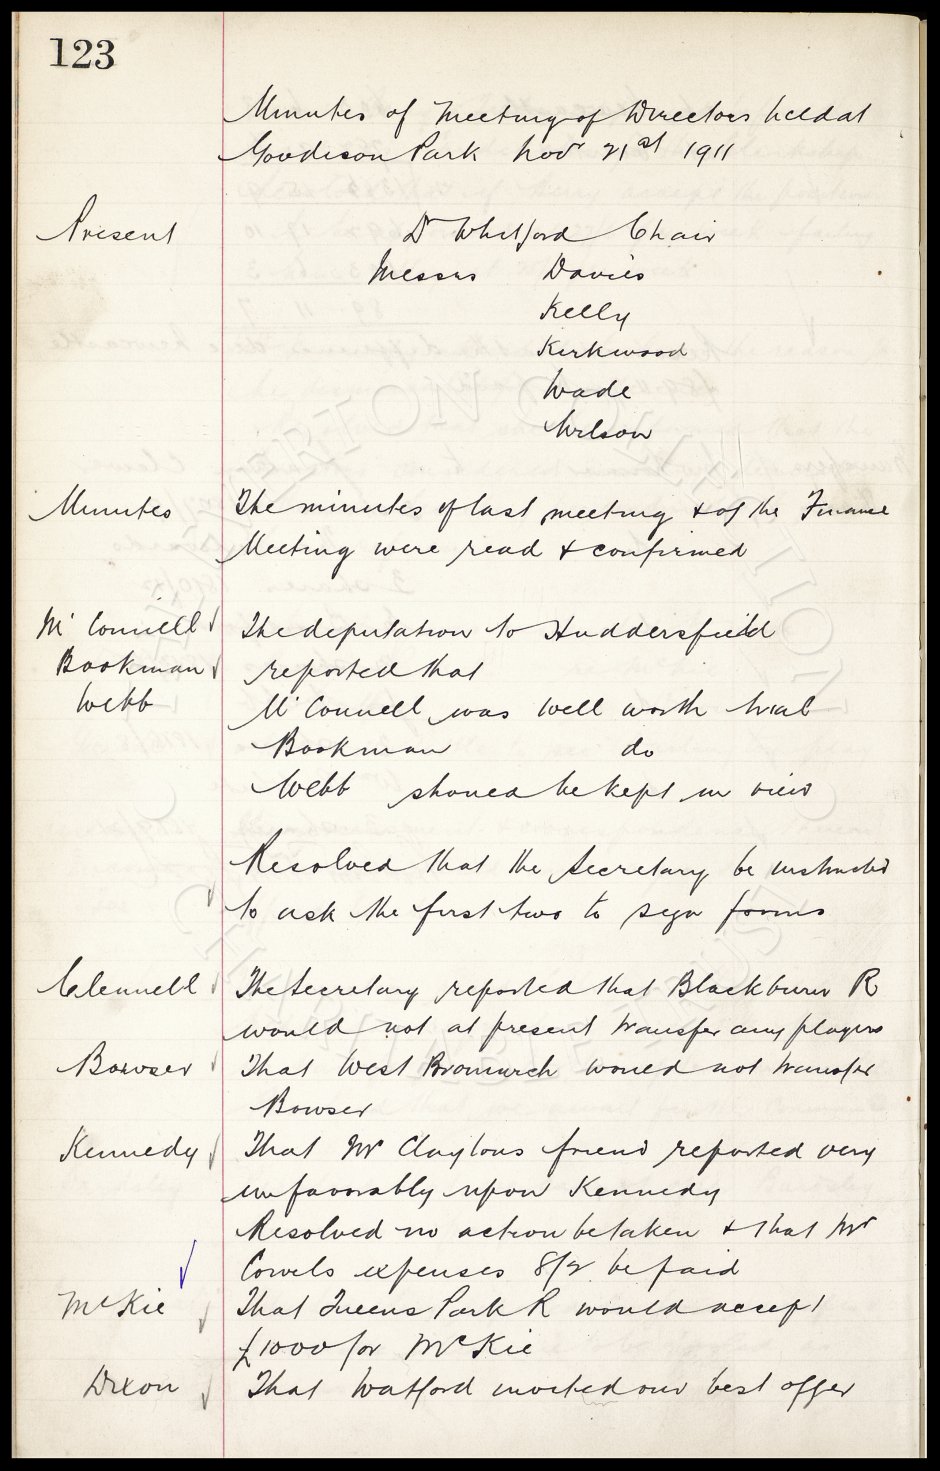 123
Minutes of Meeting of Directors held at
Goodison Park Novr 21st 1911
Present Dr Whitford Chair
Messrs Davies
Kelly
Kirkwood
Wade
Wilson
Minutes The minutes of last meeting & of the Finance
Meeting were read & confirmed
Mc Connell The deputation to Huddersfield
Bookman reported that
Webb Mc Connell was well worth trial
Bookman do
Webb should be kept in view
Resolved that the Secretary be instructed
to ask the first two to sign forms
Clennell The Secretary reported that Blackburn R
would not at present transfer any players
Bowser That West Bromwich would not transfer
Bowser
Kennedy That Mr Claytons friend reported very
unfavorably upon Kennedy
Resolved no action be taken & that Mr
Cowels expenses 8/2 be paid
McKie That Queens Park R would accept
£1000 for McKie
Dixon That Watford invited our best offer